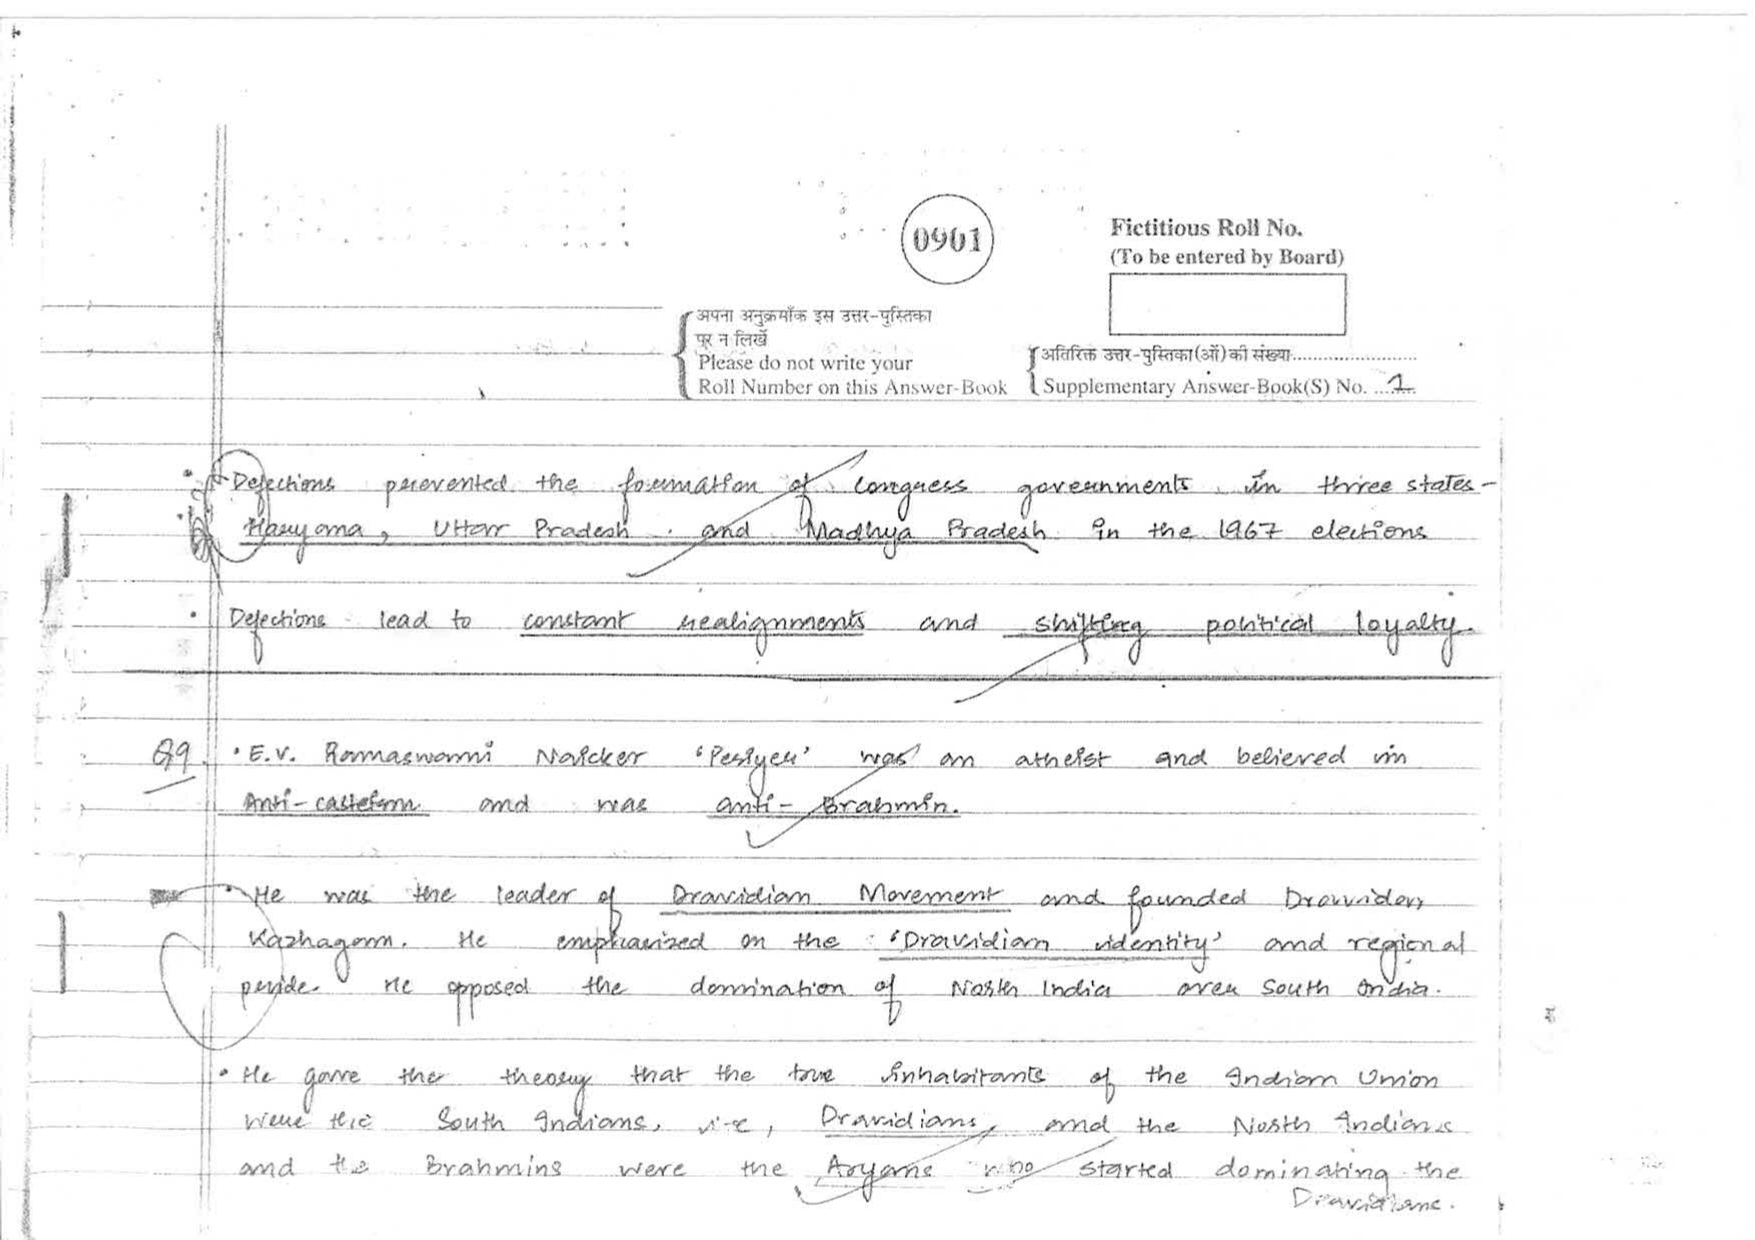 0901
Fictitious Roll No.
(To be entered by Board)
अपना अनुक्रमाँक इस उत्तर-पुस्तिका
पर न लिखें
Please do not write your
Roll Number on this Answer-Book
अतिरिक्त उत्तर-पुस्तिका(ओं) की संख्या....................
Supplementary Answer-Book(S) No. ....1..
• Defections prevented the formation of Congress governments in three states-
Haryana, Uttar Pradesh and Madhya Pradesh in the 1967 elections
• Defections lead to constant realignments and shifting political loyalty.
Q9. • E.V. Ramaswami Naicker 'Periyer' was an atheist and believed in
Anti-casteism and was anti-Brahmin.
• He was the leader of Dravidian Movement and founded Dravidar
Kazhagam. He emphasized on the 'Dravidian identity' and regional
pride. He opposed the domination of North India over South India.
• He gave the theory that the true inhabitants of the Indian Union
were the South Indians, i.e, Dravidians, and the North Indians
and the Brahmins were the Aryans who started dominating the
Dravidians.